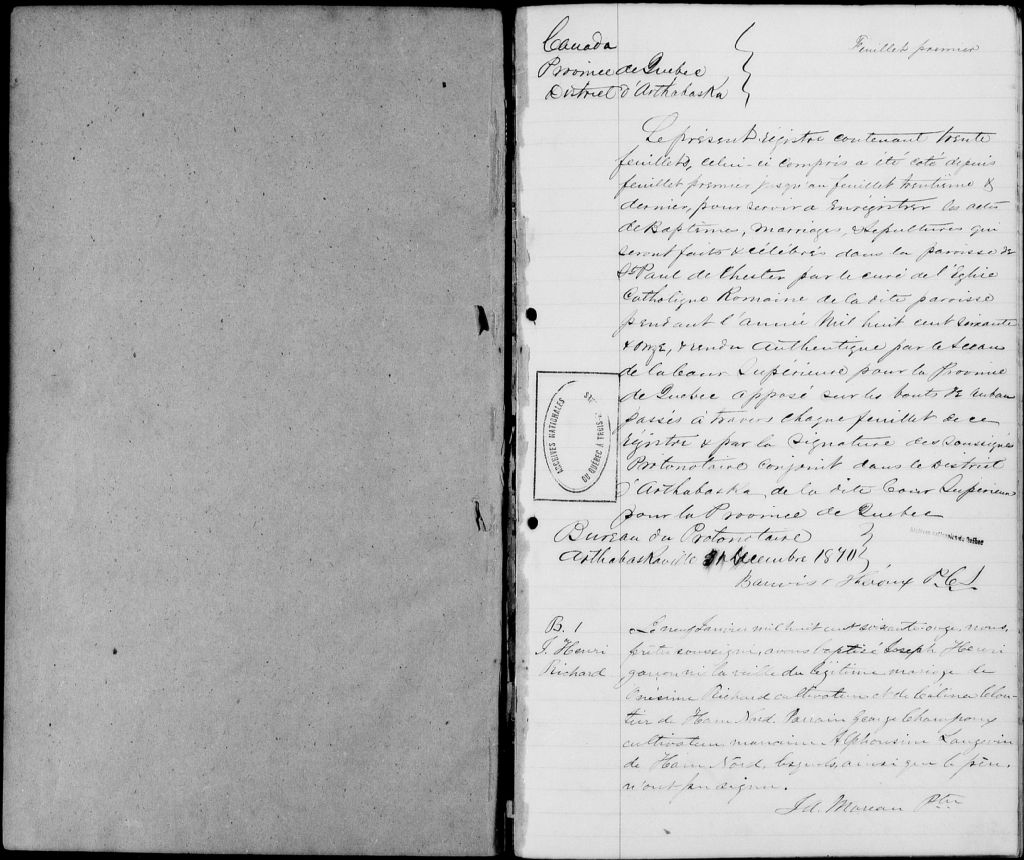 Feuillet premier
Canada
Province de Quebec
District d'Arthabaska
Le présent régistre contenant trente
feuillets, celui-ci compris a été coté depuis
feuillet premier jusqu'au feuillet trentième &
dernier, pour servir à Enrégistrer les actes
de Baptêmes, Marriages, & Sepultures qui
seront faits & célébrés dans la parroisse de
St Paul de Chester par le curé de l'Église
Catholique Romaine de la dite parroisse
pendant l'année Mil huit cent soixante
& onze, & rendu Authentique par le Sceau
de la Cour Supérieure pour la Province
de Quebec apposé sur les bouts de ruban
passés à travers chaque feuillet de ce
régistre & par la Signature des Soussignés
Protonotaire Conjoint dans le District
d'Arthabaska, de la dite Cour Supérieure
pour la Province de Quebec
ARCHIVES NATIONALES
DU QUÉBEC À TROIS-
Bureau du Protonotaire
Arthabaskaville 31 Decembre 1870
Archives nationales du Québec
Barwis & Théroux P.C.S
B. 1
J. Henri
Richard
Le neuf Janvier mil huit cent soixante-onze, nous,
prêtre soussigné, avons baptisé Joseph Henri
garçon né la veille du légitime mariage de
Onésime Richard cultivateur et de Célina Clou-
tier de Ham Nord. Parrain George Champoux
cultivateur marraine Alphonsine Langevin
de Ham Nord, lesquels, ainsi que le père,
n'ont pu signer.
J.d. Moreau Ptre